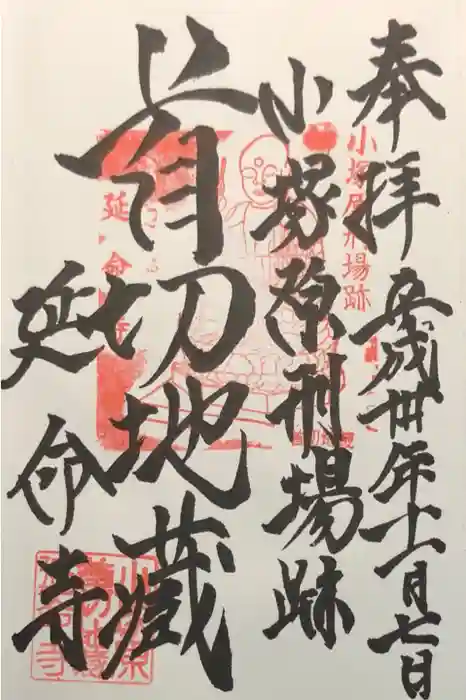 奉拝
平成卅年十一月七日
小塚原刑場跡
首切地蔵
延命寺
小塚原刑場跡
延命寺
首切地蔵